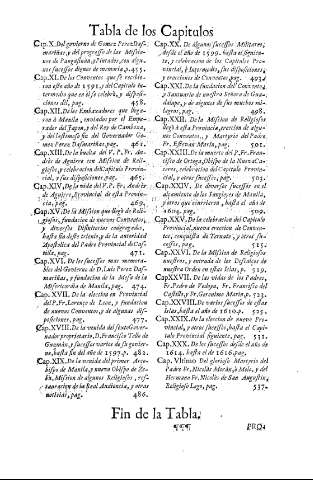 Tabla de los Capitulos
Cap. X. Del govierno de Gomez Perez Dasmariñas, y del progresso de las Missiones de Pangasinàn, y Ilocos, con algunos sucessos dignos de memoria p. 455.
Cap. XI. De los Conventos que se
con este año de 1591. y del Capitulo Intermedio que en él se celebrò, y disposiciones dèl, pag. 458.
Cap. XII. De los Embaxadores que llegaron à Manila, embiados por el Emperador del Japon, y del Rey de Camboxa, y del lastimoso fin del Governador Gomez Perez Dasmariñas. pag. 461.
Cap. XIII. De la buelta del P. Fr. Andrès de Aguirre con Mission de Religiosos, y celebracion del Capitulo Provincial, y sus disposiciones. pag. 465.
Cap. XIV. De la vida del P. Fr. Andrès de Aguirre, Provincial de esta Provincia, pag. 469.
Cap. XV. De la Mission que llegò de Religiosos, fundacion de nuevos Conventos, y diversos Distritorios congregados, hasta
Apostolica del Padre Provincial de Castilla, pag. 471.
Cap. XVI. De los sucessos mas memorables del Govierno de D. Luis Perez Dasmariñas, y fundacion de la Mesa de la Misericordia de Manila, pag. 474.
Cap. XVII. De la eleccion en Provincial del P. Fr. Lorenço de Leon, y fundacion de nuevos Conventos, y de algunas disposiciones, pag. 477.
Cap. XVIII. De la venida del Governador proprietario, D. Francisco Tello de Guzmàn, y sucessos varios de su govierno, hasta fin del año de 1597. pag. 482.
Cap. XIX. De la venida del primer Arçobispo de Manila, y nuevo Obispo de Zebù, Mission de algunos Religiosos, restauracion de la Real Audiencia, y otras noticias, pag. 486.
Cap. XX. De algunos sucessos Militares, desde el año de 1599. hasta el siguiente, y celebracion de los Capitulos Provincial, è Intermedio, sus disposiciones, y erecciones de Conventos, pag. 493.
Cap. XXI. De la fundacion del Convento, y Santuario de nuestra Señora de Guadalupe, y de algunos de sus muchos milagros, pag. 498.
Cap. XXII. De la Mission de Religiosos que llegò à esta Provincia, ereccion de algunos Conventos, y Martyrio del Padre Fr. Estevan Marin, pag. 502.
Cap. XXIII. De la muerte del P. Fr. Francisco de Ortega, Obispo de la Nueva Cazeres, celebracion del Capitulo Provincial, y otros sucessos, pag. 505.
Cap. XXIV. De diversos sucessos en el alçamiento de los Sangleyes de Manila, y otros que ocurrieron, hasta el año de 1604. pag. 509.
Cap. XXV. De la celebracion del Capitulo Provincial, nueva ereccion de Conventos, conquista de Ternate, y otros sucessos, pag. 515.
Cap. XXVI. De la Mission de Religiosos nuestros, y entrada de los Descalços de nuestra Orden en estas Islas, p. 521.
Cap. XXVII. De las vidas de los Padres, Fr. Pedro de Vadepa, Fr. Francisco del Castillo, y Fr. Geronimo Marin, p. 525.
Cap. XXVIII. De varios sucessos de estas Islas, hasta el año de 1610. p. 525.
Cap. XXIX. De la eleccion de nuevo Provincial, y otros sucessos, hasta el Capitulo Provincial siguiente, pag. 531.
Cap. XXX. De los sucessos desde el año de 1614. hasta el de 1616. pag.
Cap. Vltimo Del glorioso Martyrio del Padre Fr. Nicolàs Moràn, ò Melo, y del Hermano Fr. Nicolàs de San Augustin, Religioso Lego, pag. 537.
Fin de la Tabla.
¶¶¶
PRO-